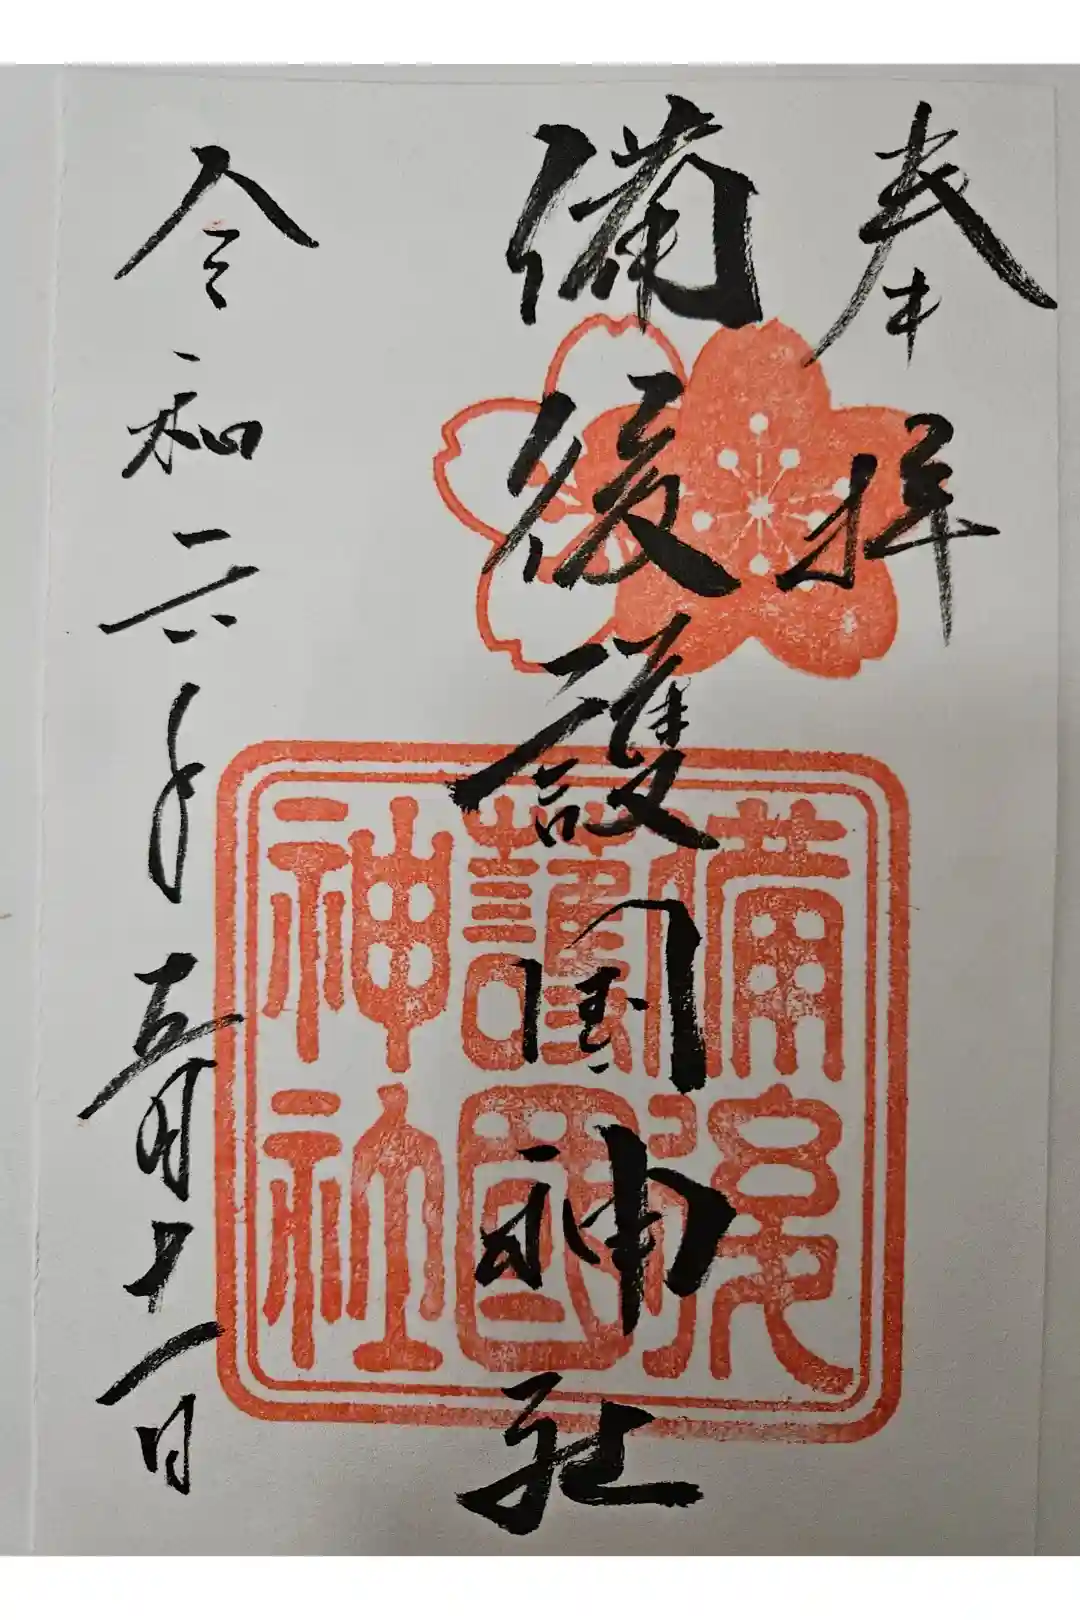 奉拝
備後護國神社
令和六年五月十一日
備後
護國
神社